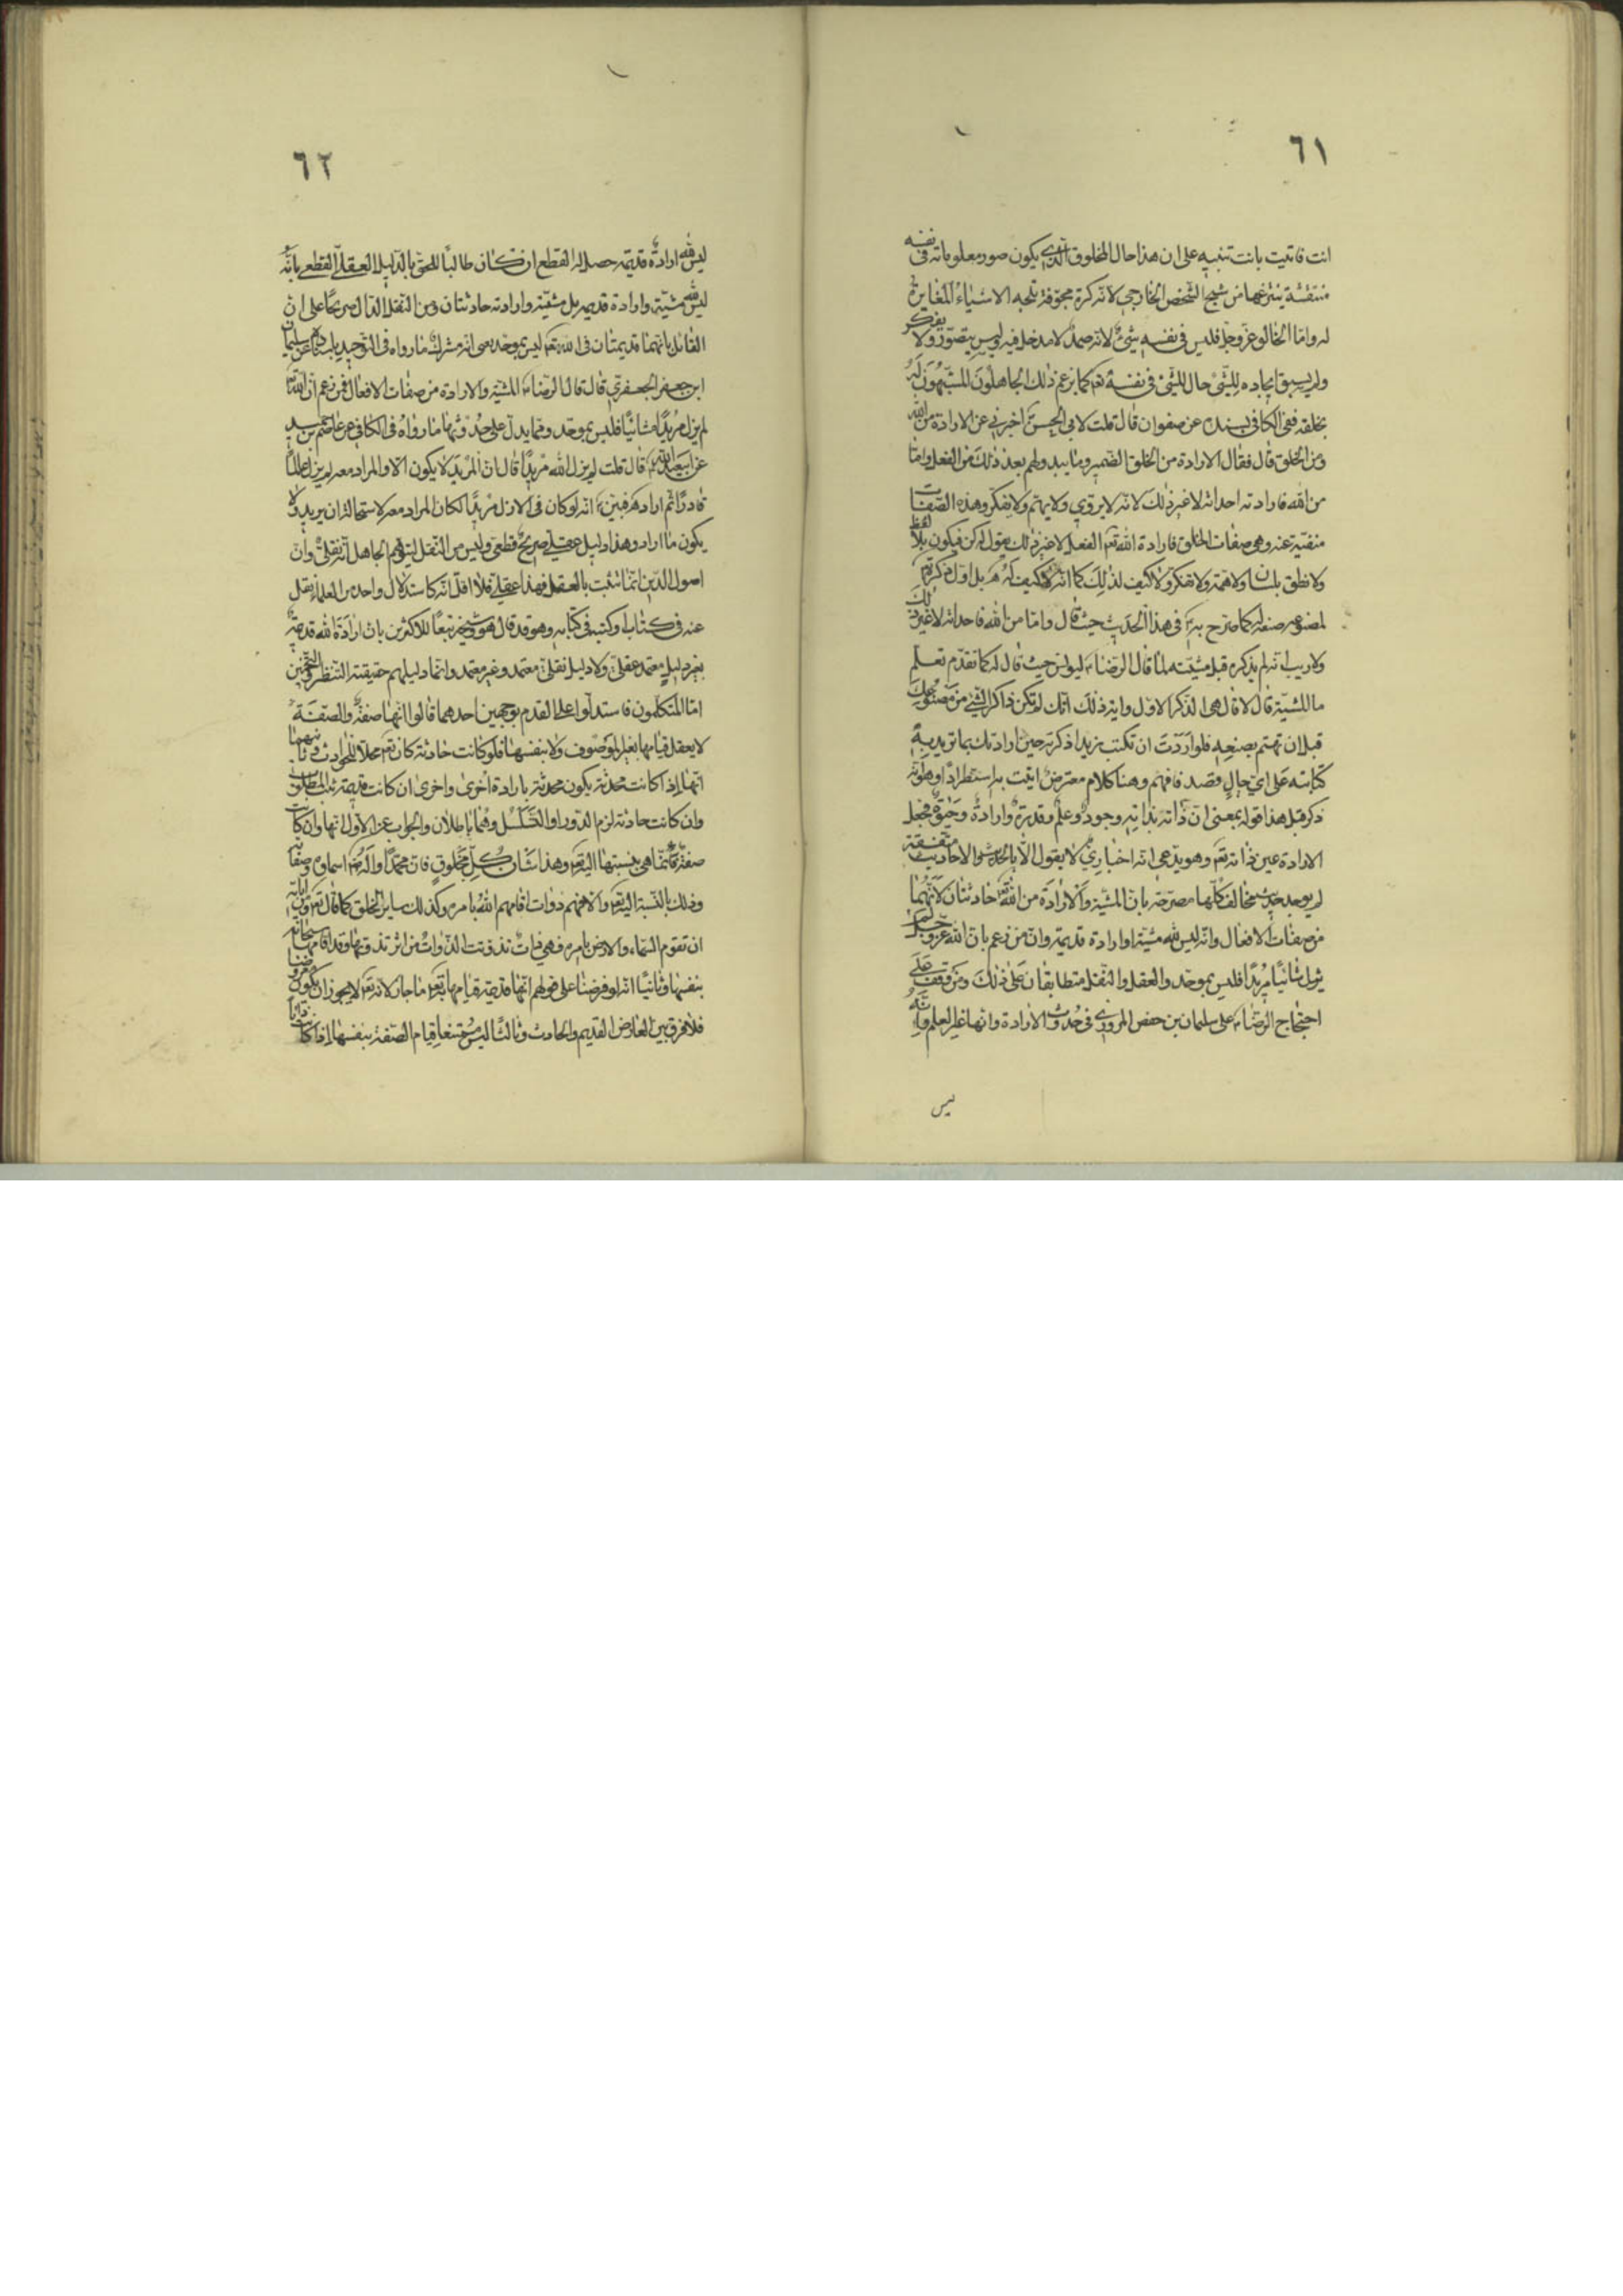 ٦١
انت فاتيت بانت تنبيه على ان هذا حال المخلوق الذي يكون صور معلوماته في نفسه
منتقشة ينتزعها من شبح الشخص الخارجي لانه كرة مجوفة تلجه الاشياء المغايرة
له واما الخالق عز وجل فليس في نفسه شيء لانه صمد لا مدخل فيه ليس يتصور ولا يفكر
ولم يسبق ايجاده للشيء حال للشيء في نفسه تع كما يزعم ذلك الجاهلون المشبهون له
بخلقه ففي الكافي بسنده عن صفوان قال قلت لابي الحسن اخبرني عن الارادة من الله
ومن الخلق قال فقال الارادة من الخلق الضمير وما يبدو لهم بعد ذلك من الفعل واما
من الله فارادته احداثه لا غير ذلك لانه لا يروي ولا يهم ولا يتفكر وهذه الصفات
منفية عنه وهي صفات الخلق فارادة الله تع الفعل لا غير ذلك يقول له كن فيكون بلا لفظ
ولا نطق بلسان ولا همة ولا تفكر ولا كيف لذلك كما انه لا كيف له بل اول ذكره
لمصنوعه صنعه له كما صرح به في هذا الحديث حيث قال واما من الله فاحداثه لا غير ذلك
ولا ريب انه لم يذكره قبل مشيته لما قال الرضا ليونس حيث قال له كما تقدم تعلم
ما المشية قال لا قال هي الذكر الاول واية ذلك انك لم تكن ذاكر الشيء من مصنوعك
قبل ان تهتم بصنعه فلو اردت ان تكتب زيدا ذكرته حين ارادتك بما تريد به
كتابته على اي حال وقصد فافهم وهنا كلام معترض اتيت به استطرادا وهو انه
ذكر قبل هذا قوله بمعنى ان ذاته بذاته وجود وعلم وقدرة وارادة وحيوة فجعل
الارادة عين ذاته تع وهو يدعي انه اخباري لا يقول الا بالحديث والاحاديث متفقة
لم يوجد حديث مخالف كلها مصرحة بان المشية والارادة من الله تع حادثتان لانهما
من صفات الافعال وانه ليس لله مشية او ارادة قديمة وان من زعم بان الله عز وجل لم
يزل شائيا مريدا فليس بموحد والعقل والنقل متطابقان على ذلك ومن وقف على
احتجاج الرضا على سليمان بن حفص المروزي في حدوث الارادة وانها غير العلم وانه
ليس
٦٢
ليس لله ارادة قديمة حصل له القطع ان كان طالبا للحق بالدليل العقلي القطعي بانه
ليس لله مشية وارادة قديمة بل مشيته وارادته حادثتان ومن النقل الدال صريحا على ان
القائل بانهما قديمتان في الله تع ليس بموحد يعني انه مشرك ما رواه في التوحيد باسناده عن سليمان
ابن جعفر الجعفري قال قال الرضا المشية والارادة من صفات الافعال فمن زعم ان الله
لم يزل مريدا شائيا فليس بموحد ومما يدل على حدوثها ما رواه في الكافي عن عاصم بن حميد
عن ابي عبد الله قال قلت لم يزل الله مريدا قال ان المريد لا يكون الا والمراد معه لم يزل عالما
قادرا ثم اراد فبين انه لو كان في الازل مريدا لكان المراد معه لاستحالة ان يريد ولا
يكون ما اراد وهذا دليل عقلي صريح قطعي وليس من النقل ليتوهم الجاهل انه نقلي وان
اصول الدين انما تثبت بالعقل فهذا عقلي فلا اقل انه كاستدلال واحد من العلماء ينقل
عنه في كتاب او كتبه في كتابه وهو قد قال هو وشيخه تبعا للاكثرين بان ارادة الله قديمة
بغير دليل معتمد عقلي ولا دليل نقلي معتمد وغير معتمد وانما دليلهم حقيقته التنظر والتخمين
اما المتكلمون فاستدلوا على القدم بوجهين احدهما قالوا انها صفة والصفة
لا يعقل قيامها بغير الموصوف ولا بنفسها فلو كانت حادثة كان تع محلا للحوادث وثانيهما
انها اذا كانت محدثة يكون محدثة بارادة اخرى واخرى ان كانت قديمة ثبت المطلوب
وان كانت حادثة لزم الدور او التسلسل وهما باطلان والجواب عن الاول انها وان كانت
صفة فانما هي بنسبتها اليه تع وهذا شان كل مخلوق فان محمدا واله اسماؤه وصفاته
وذلك بالنسبة اليه تع والا فهم ذوات اقامهم الله بامره وكذلك ساير الخلق كما قال تع ومن اياته
ان تقوم السماء والارض بامره فهي ذات تذوتت الذوات من اثر تذوتها وقد اقامها سبحانه
بنفسها وثانيا انه لو فرضنا على قولهم انها قديمة قيامها به تع ما جاز لانه تع لا يجوز ان يكون معروضا
فلا فرق بين العارض القديم والحادث وثالثا ليس ممتنعا قيام الصفة بنفسها اذا كانت ذاتا